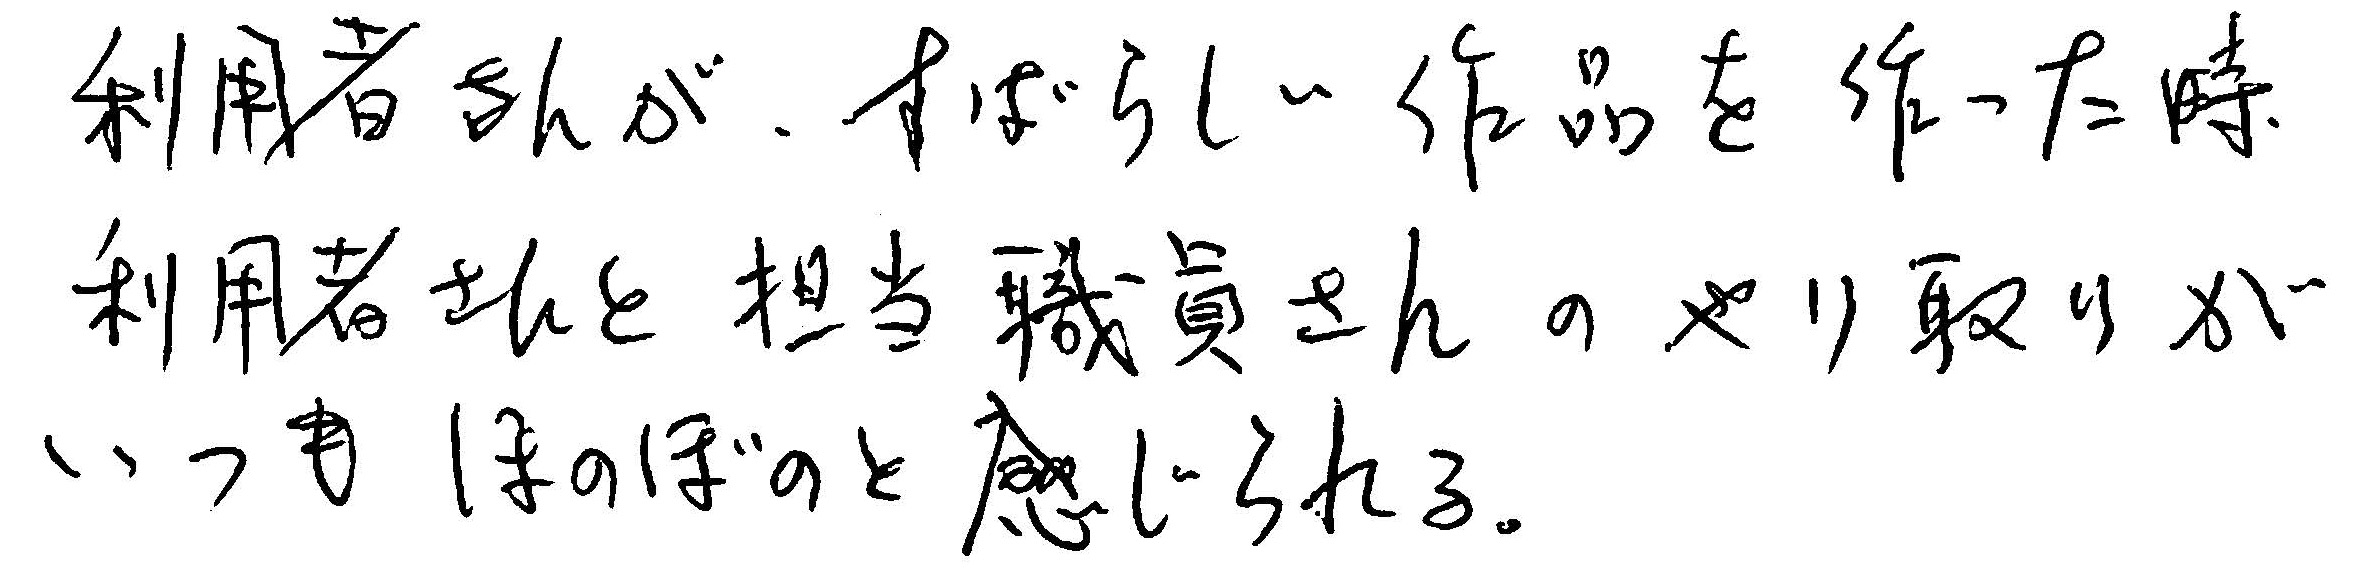 利用者さんが、すばらしい作品を作った時、
利用者さんと担当職員さんのやり取りが
いつもほのぼのと感じられる。